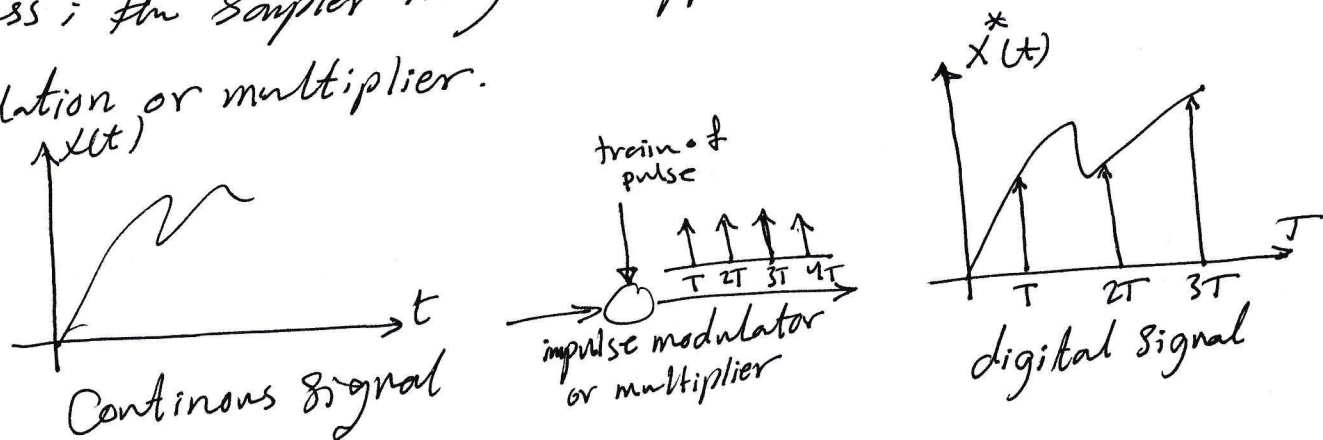 ss ; the sampler
lation or multiplier.
X(t)
t
Continous signal
train of
pulse
T 2T 3T 4T
impulse modulator
or multiplier
X*(t)
T
T 2T 3T
digital signal